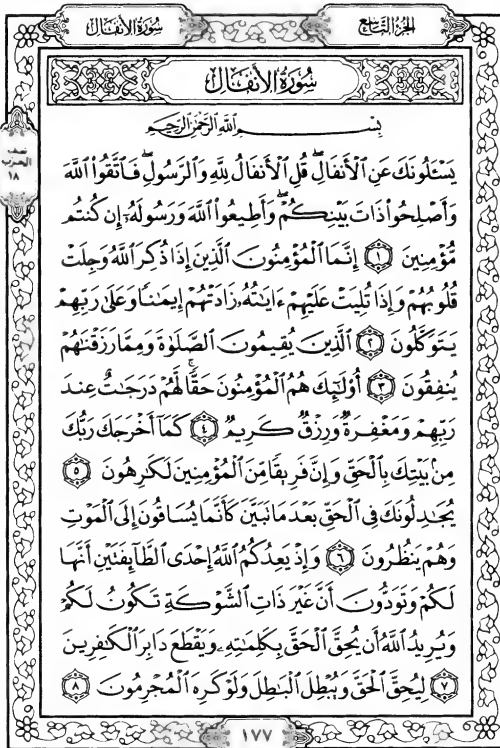 سُورَةُ الأَنفَال
الجُزْءُ التَّاسِع
سُورَةُ الأَنفَالِ
نصف
الحزب
١٨
بِسْمِ ٱللَّهِ ٱلرَّحْمَٰنِ ٱلرَّحِيمِ
يَسْـَٔلُونَكَ عَنِ ٱلْأَنفَالِۖ قُلِ ٱلْأَنفَالُ لِلَّهِ وَٱلرَّسُولِۖ فَٱتَّقُوا۟ ٱللَّهَ
وَأَصْلِحُوا۟ ذَاتَ بَيْنِكُمْۖ وَأَطِيعُوا۟ ٱللَّهَ وَرَسُولَهُۥٓ إِن كُنتُم
مُّؤْمِنِينَ ١ إِنَّمَا ٱلْمُؤْمِنُونَ ٱلَّذِينَ إِذَا ذُكِرَ ٱللَّهُ وَجِلَتْ
قُلُوبُهُمْ وَإِذَا تُلِيَتْ عَلَيْهِمْ ءَايَٰتُهُۥ زَادَتْهُمْ إِيمَٰنًا وَعَلَىٰ رَبِّهِمْ
يَتَوَكَّلُونَ ٢ ٱلَّذِينَ يُقِيمُونَ ٱلصَّلَوٰةَ وَمِمَّا رَزَقْنَٰهُمْ
يُنفِقُونَ ٣ أُو۟لَٰٓئِكَ هُمُ ٱلْمُؤْمِنُونَ حَقًّاۚ لَّهُمْ دَرَجَٰتٌ عِندَ
رَبِّهِمْ وَمَغْفِرَةٌ وَرِزْقٌ كَرِيمٌ ٤ كَمَآ أَخْرَجَكَ رَبُّكَ
مِنۢ بَيْتِكَ بِٱلْحَقِّ وَإِنَّ فَرِيقًا مِّنَ ٱلْمُؤْمِنِينَ لَكَٰرِهُونَ ٥
يُجَٰدِلُونَكَ فِى ٱلْحَقِّ بَعْدَ مَا تَبَيَّنَ كَأَنَّمَا يُسَاقُونَ إِلَى ٱلْمَوْتِ
وَهُمْ يَنظُرُونَ ٦ وَإِذْ يَعِدُكُمُ ٱللَّهُ إِحْدَى ٱلطَّآئِفَتَيْنِ أَنَّهَا
لَكُمْ وَتَوَدُّونَ أَنَّ غَيْرَ ذَاتِ ٱلشَّوْكَةِ تَكُونُ لَكُمْ
وَيُرِيدُ ٱللَّهُ أَن يُحِقَّ ٱلْحَقَّ بِكَلِمَٰتِهِۦ وَيَقْطَعَ دَابِرَ ٱلْكَٰفِرِينَ
٧ لِيُحِقَّ ٱلْحَقَّ وَيُبْطِلَ ٱلْبَٰطِلَ وَلَوْ كَرِهَ ٱلْمُجْرِمُونَ ٨
١٧٧